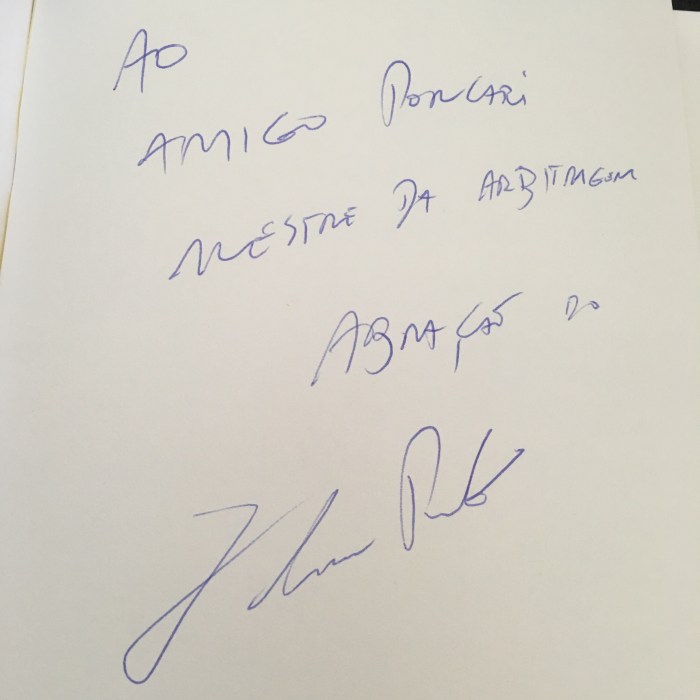 AO
AMIGO PORCARI
MESTRE DA ARBITRAGEM
ABRAÇÃO DO